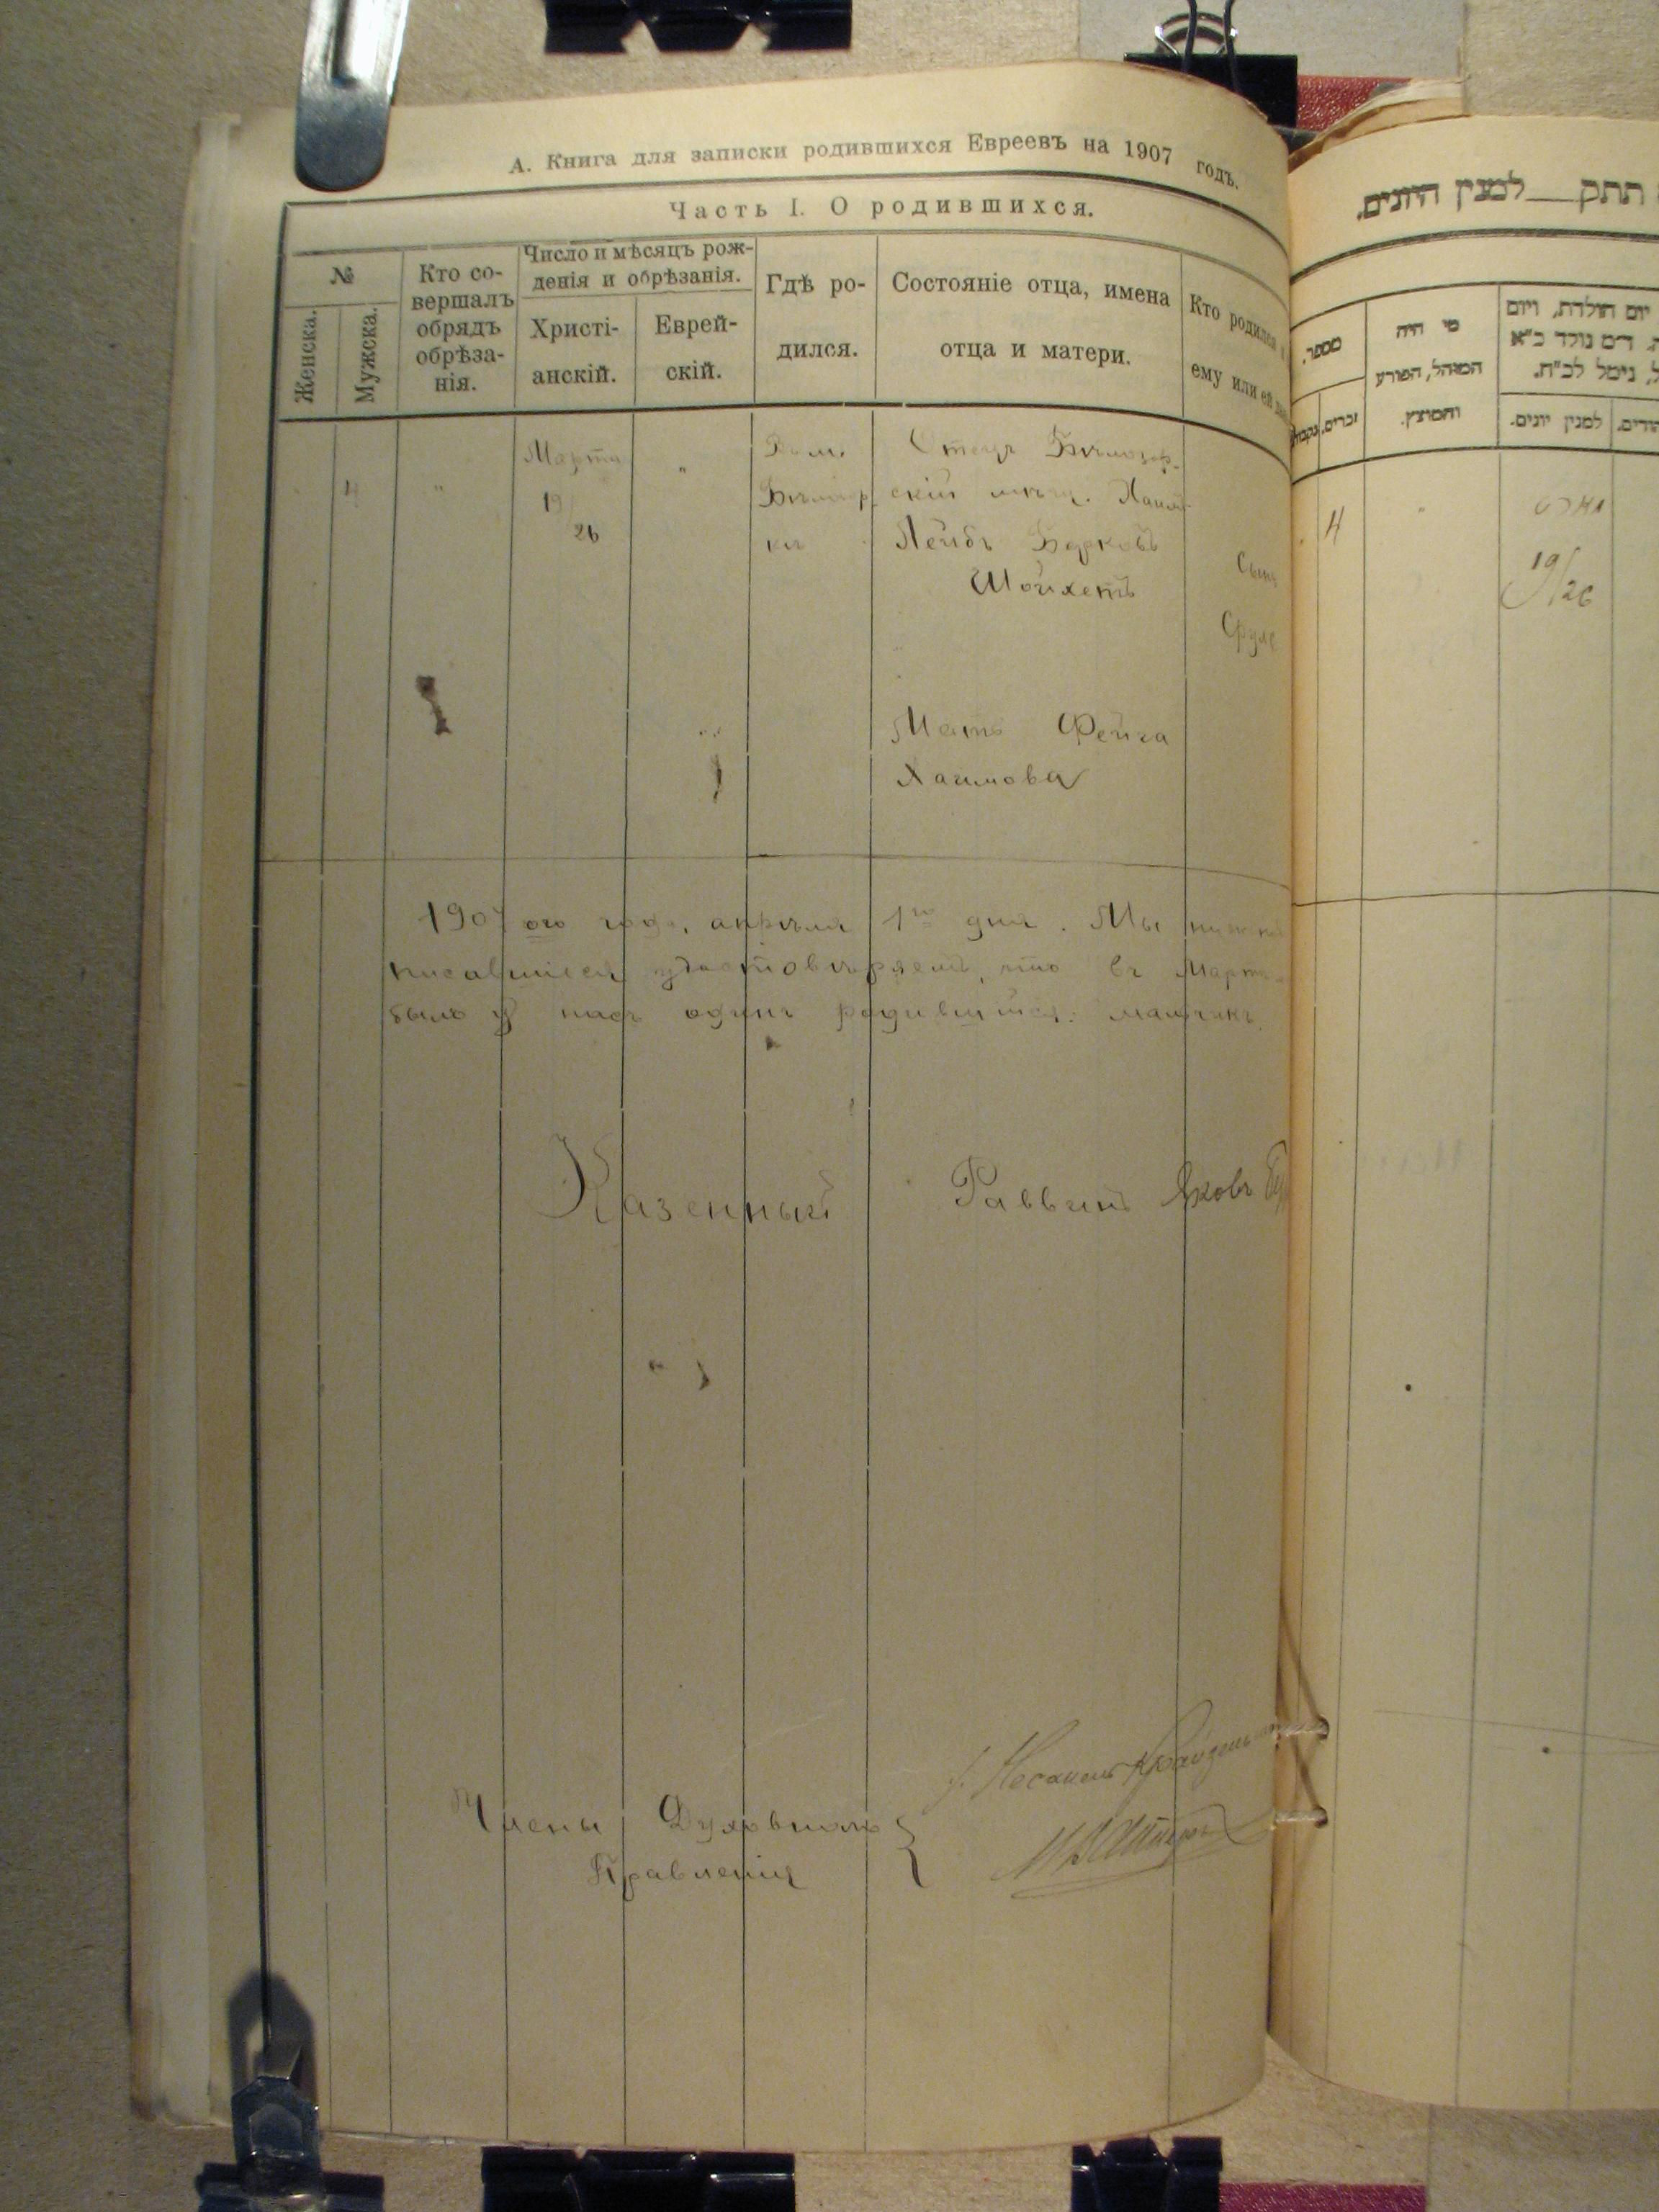 А. Книга для записки родившихся Евреевъ на 1907 годъ.
Часть I. О родившихся.
№
Женска.
Мужска.
Кто со-
вершалъ
обрядъ
обрѣза-
нія.
Число и мѣсяцъ рож-
денія и обрѣзанія.
Христі-
анскій.
Еврей-
скій.
Гдѣ ро-
дился.
Состояніе отца, имена
отца и матери.
Кто родился
ему или ей
4
"
Марта
19/26
"
Отецъ Бѣлоцер-
скій мѣщ.
Лейбъ Берковъ
Шойхетъ
Мать Фейга
Хаимова
Сынъ
Сруль
1907 ого года, апрѣля 1го дня. Мы
писавшіеся удостовѣряемъ, что въ Мартѣ
было у насъ одинъ родившійся: мальчикъ.
Казенный Раввинъ Яковъ
Члены Духовнаго
Правленія
תתק___למנין היונים.
מספר.
זכרים.
מי היה
המוהל, הפורע
והמוצץ.
יום הולדת, ויום
למנין יונים.
4
"
19/26